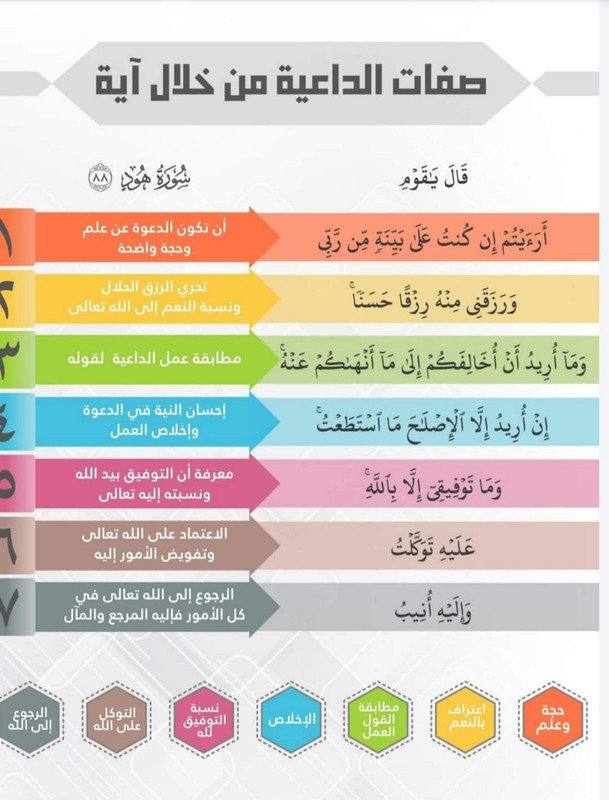 صفات الداعية من خلال آية
قَالَ يَٰقَوْمِ
سُورَةُ هُودٍ ٨٨
أَرَءَيْتُمْ إِن كُنتُ عَلَىٰ بَيِّنَةٍ مِّن رَّبِّى
أن تكون الدعوة عن علم
وحجة واضحة
١
وَرَزَقَنِى مِنْهُ رِزْقًا حَسَنًا ۚ
تحري الرزق الحلال
ونسبة النعم إلى الله تعالى
٢
وَمَآ أُرِيدُ أَنْ أُخَالِفَكُمْ إِلَىٰ مَآ أَنْهَىٰكُمْ عَنْهُ ۚ
مطابقة عمل الداعية لقوله
٣
إِنْ أُرِيدُ إِلَّا ٱلْإِصْلَٰحَ مَا ٱسْتَطَعْتُ ۚ
إحسان النية في الدعوة
وإخلاص العمل
٤
وَمَا تَوْفِيقِىٓ إِلَّا بِٱللَّهِ ۚ
معرفة أن التوفيق بيد الله
ونسبته إليه تعالى
٥
عَلَيْهِ تَوَكَّلْتُ
الاعتماد على الله تعالى
وتفويض الأمور إليه
٦
وَإِلَيْهِ أُنِيبُ
الرجوع إلى الله تعالى في
كل الأمور فإليه المرجع والمآل
٧
حجة
وعلم
اعتراف
بالنعم
مطابقة
القول
العمل
الإخلاص
نسبة
التوفيق
لله
التوكل
على الله
الرجوع
إلى الله